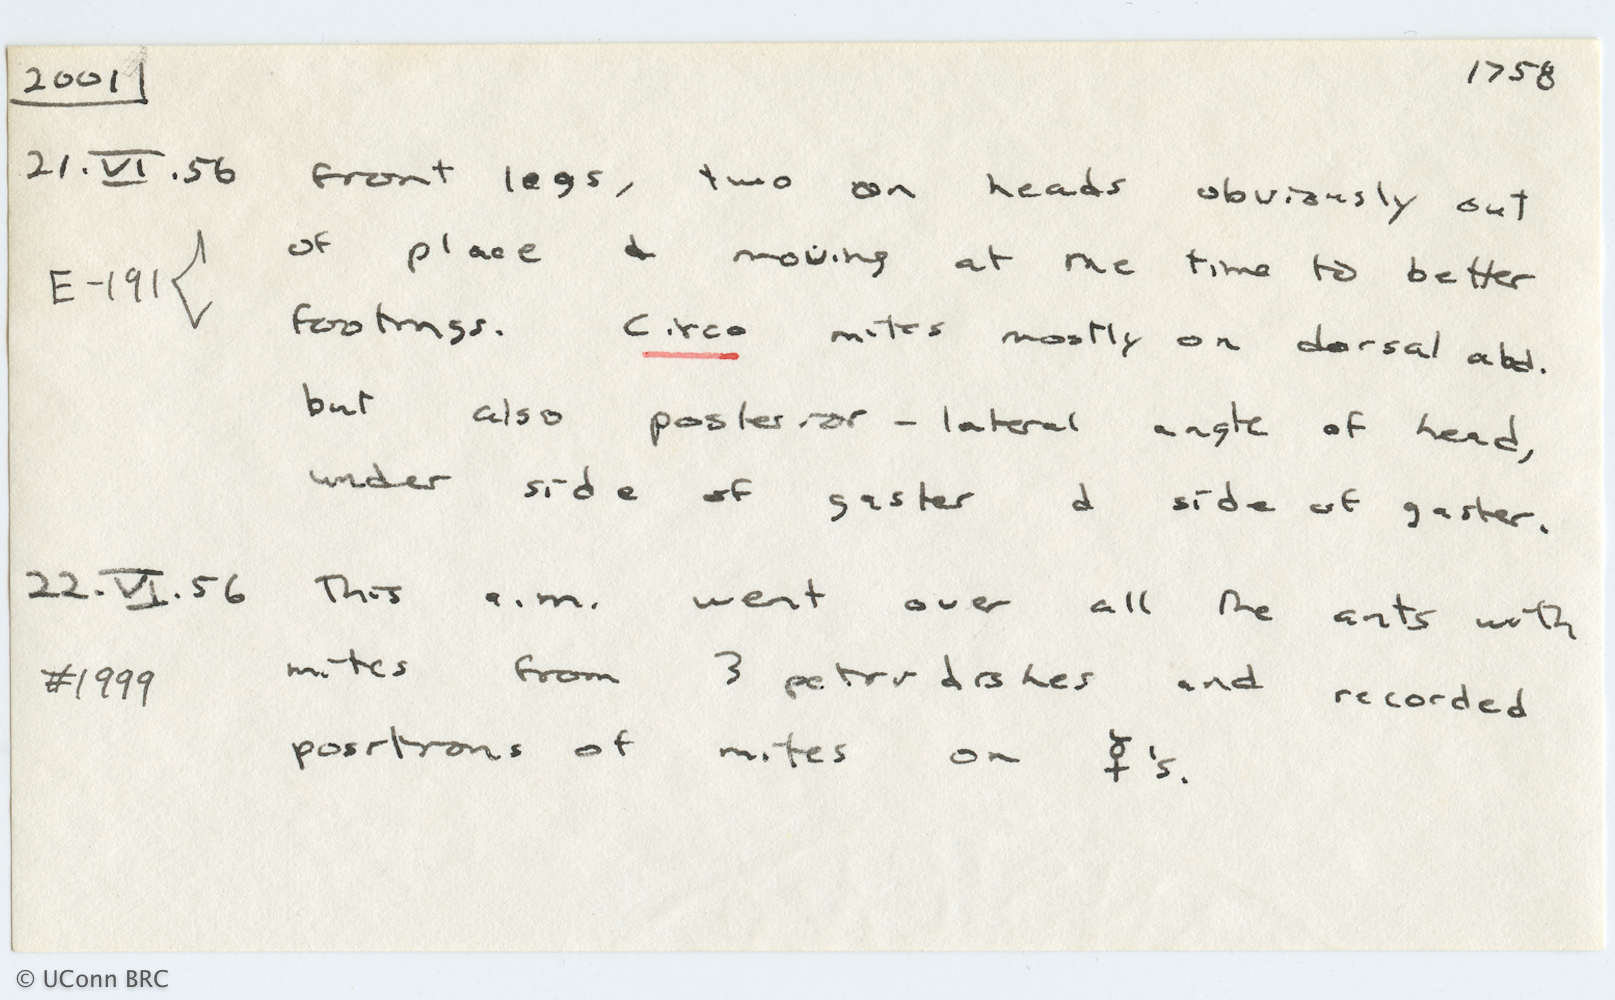 2001 1758
21.VI.56 front legs, two on heads obviously out
of place & moving at the time to better
E-191 { footings. Circo mites mostly on dorsal abd.
but also posterior - lateral angle of head,
under side of gaster & side of gaster.
22.VI.56 This a.m. went over all the ants with
#1999 mites from 3 petri dishes and recorded
positions of mites on ☿'s.
© UConn BRC